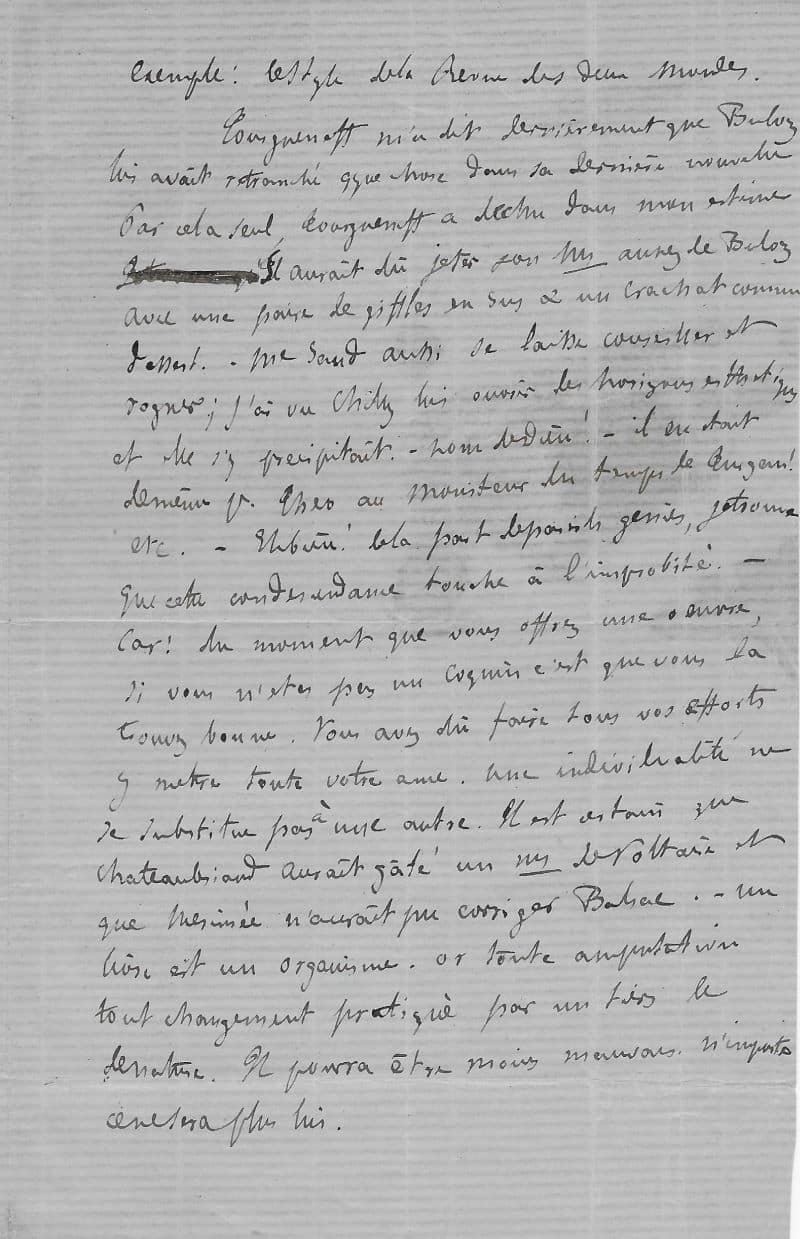 exemple : le style de la Revue des deux Mondes.
Tourgueneff m'a dit dernièrement que Buloz
lui avait retranché qque chose dans sa dernière nouvelle
Par cela seul, Tourgueneff a déchu dans mon estime
Il aurait du jeter son Ms au nez de Buloz
avec une paire de gifles en sus & un crachat comme
dessert. – Me Sand aussi se laisse conseiller et
rogner ; j'ai vu Chilly lui ouvrir des horizons esthétiques
et elle s'y précipitait. – nom de dieu ! – il en était
de même pr. Théo au Moniteur du temps de Turgan !
etc. – Eh bien ! de la part de pareils génies, je trouve
que cette condescendance touche à l'improbité. –
Car ! du moment que vous offrez une oeuvre,
si vous n'etes pas un coquin c'est que vous la
trouvez bonne. Vous avez dû faire tous vos efforts
y mettre toute votre ame. une individualité ne
se substitue pas à une autre. Il est certain que
Chateaubriand aurait gâté un ms de Voltaire et
que Mérimée n'aurait pu corriger Balzac. – un
livre est un organisme. or toute amputation
tout changement pratiqué par un tiers le
dénature. Il pourra être moins mauvais. n'importe
ce ne sera plus lui.